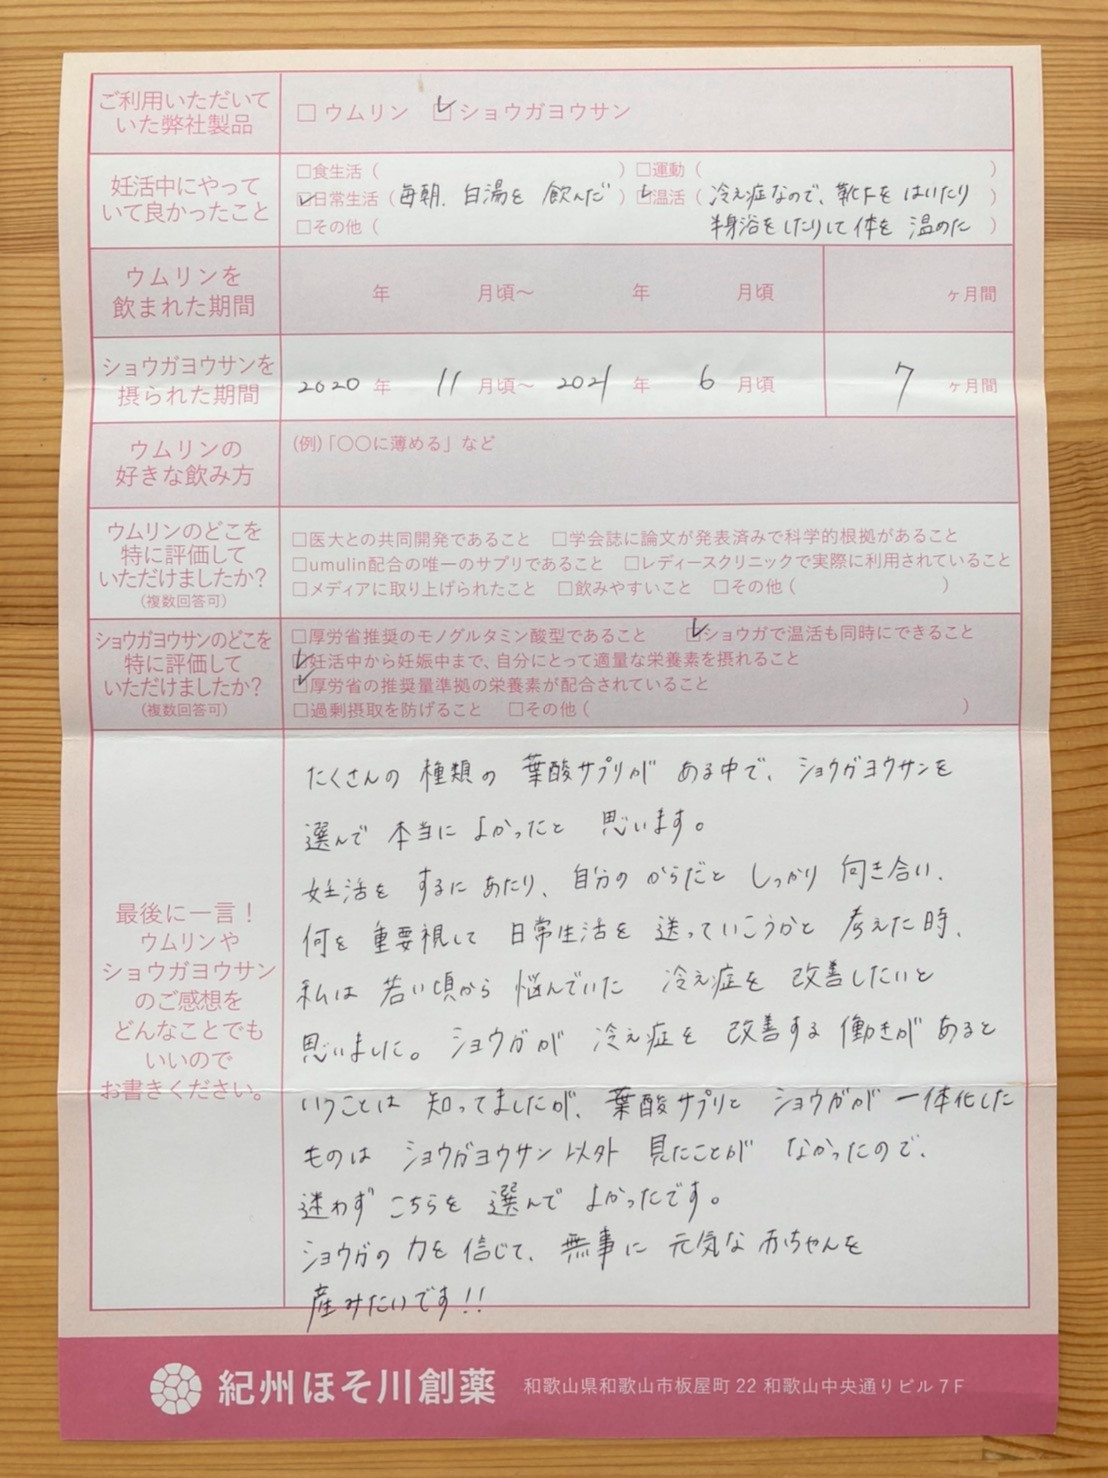 ご利用いただいて
いた弊社製品
□ ウムリン ☑ショウガヨウサン
妊活中にやって
いて良かったこと
□食生活（ ）□運動（ ）
☑日常生活（毎朝、白湯を 飲んだ）☑温活（冷え症なので、靴下を はいたり
□その他（ 半身浴をしたりして体を 温めた ）
ウムリンを
飲まれた期間
年 月頃〜 年 月頃 ヶ月間
ショウガヨウサンを
摂られた期間
2020 年 11 月頃〜 2021 年 6 月頃 7 ヶ月間
ウムリンの
好きな飲み方
(例)「〇〇に薄める」など
ウムリンのどこを
特に評価して
いただけましたか?
(複数回答可)
□医大との共同開発であること □学会誌に論文が発表済みで科学的根拠があること
□umulin配合の唯一のサプリであること □レディースクリニックで実際に利用されていること
□メディアに取り上げられたこと □飲みやすいこと □その他（ ）
ショウガヨウサンのどこを
特に評価して
いただけましたか?
(複数回答可)
□厚労省推奨のモノグルタミン酸型であること ☑ショウガで温活も同時にできること
☑妊活中から妊娠中まで、自分にとって適量な栄養素を摂れること
☑厚労省の推奨量準拠の栄養素が配合されていること
□過剰摂取を防げること □その他（ ）
最後に一言！
ウムリンや
ショウガヨウサン
のご感想を
どんなことでも
いいので
お書きください。
たくさんの 種類の 葉酸サプリが ある中で、ショウガヨウサンを
選んで 本当に よかったと 思います。
妊活を するに あたり、自分の からだと しっかり 向き合い、
何を 重要視して 日常生活を 送っていこうかと 考えた時、
私は 若い頃から 悩んでいた 冷え症を 改善したいと
思いました。ショウガが 冷え症を 改善する 働きが あると
いうことは 知ってましたが、葉酸サプリと ショウガが 一体化した
ものは ショウガヨウサン以外 見たことが なかったので、
迷わず こちらを 選んで よかったです。
ショウガの 力を 信じて、無事に 元気な 赤ちゃんを
産みたいです!!
紀州ほそ川創薬 和歌山県和歌山市板屋町 22 和歌山中央通りビル 7F